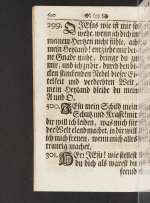 299. O JEsu wie ist mir so
wehe, wenn ich dich in
meinem Hertzen nicht fühle, ach
mein Heyland! entziehe mir dei-
ne Gnade nicht, bringe du zu
mir, und ich zu dir, durch den di-
cken finstern Nebel dieser Ei-
telkeit und verderbten Welt
mein Heyland bleibe du mein
A und O.
300. JEsu mein Schild mein
Schutz und Krafft mit
dir will ich leiden, was mich für
der Welt elend machet, in dir will
ich mich freuen, wenn mich alles
traurig machet.
301. HErr JEsu! wie stellest
du dich als wärest du